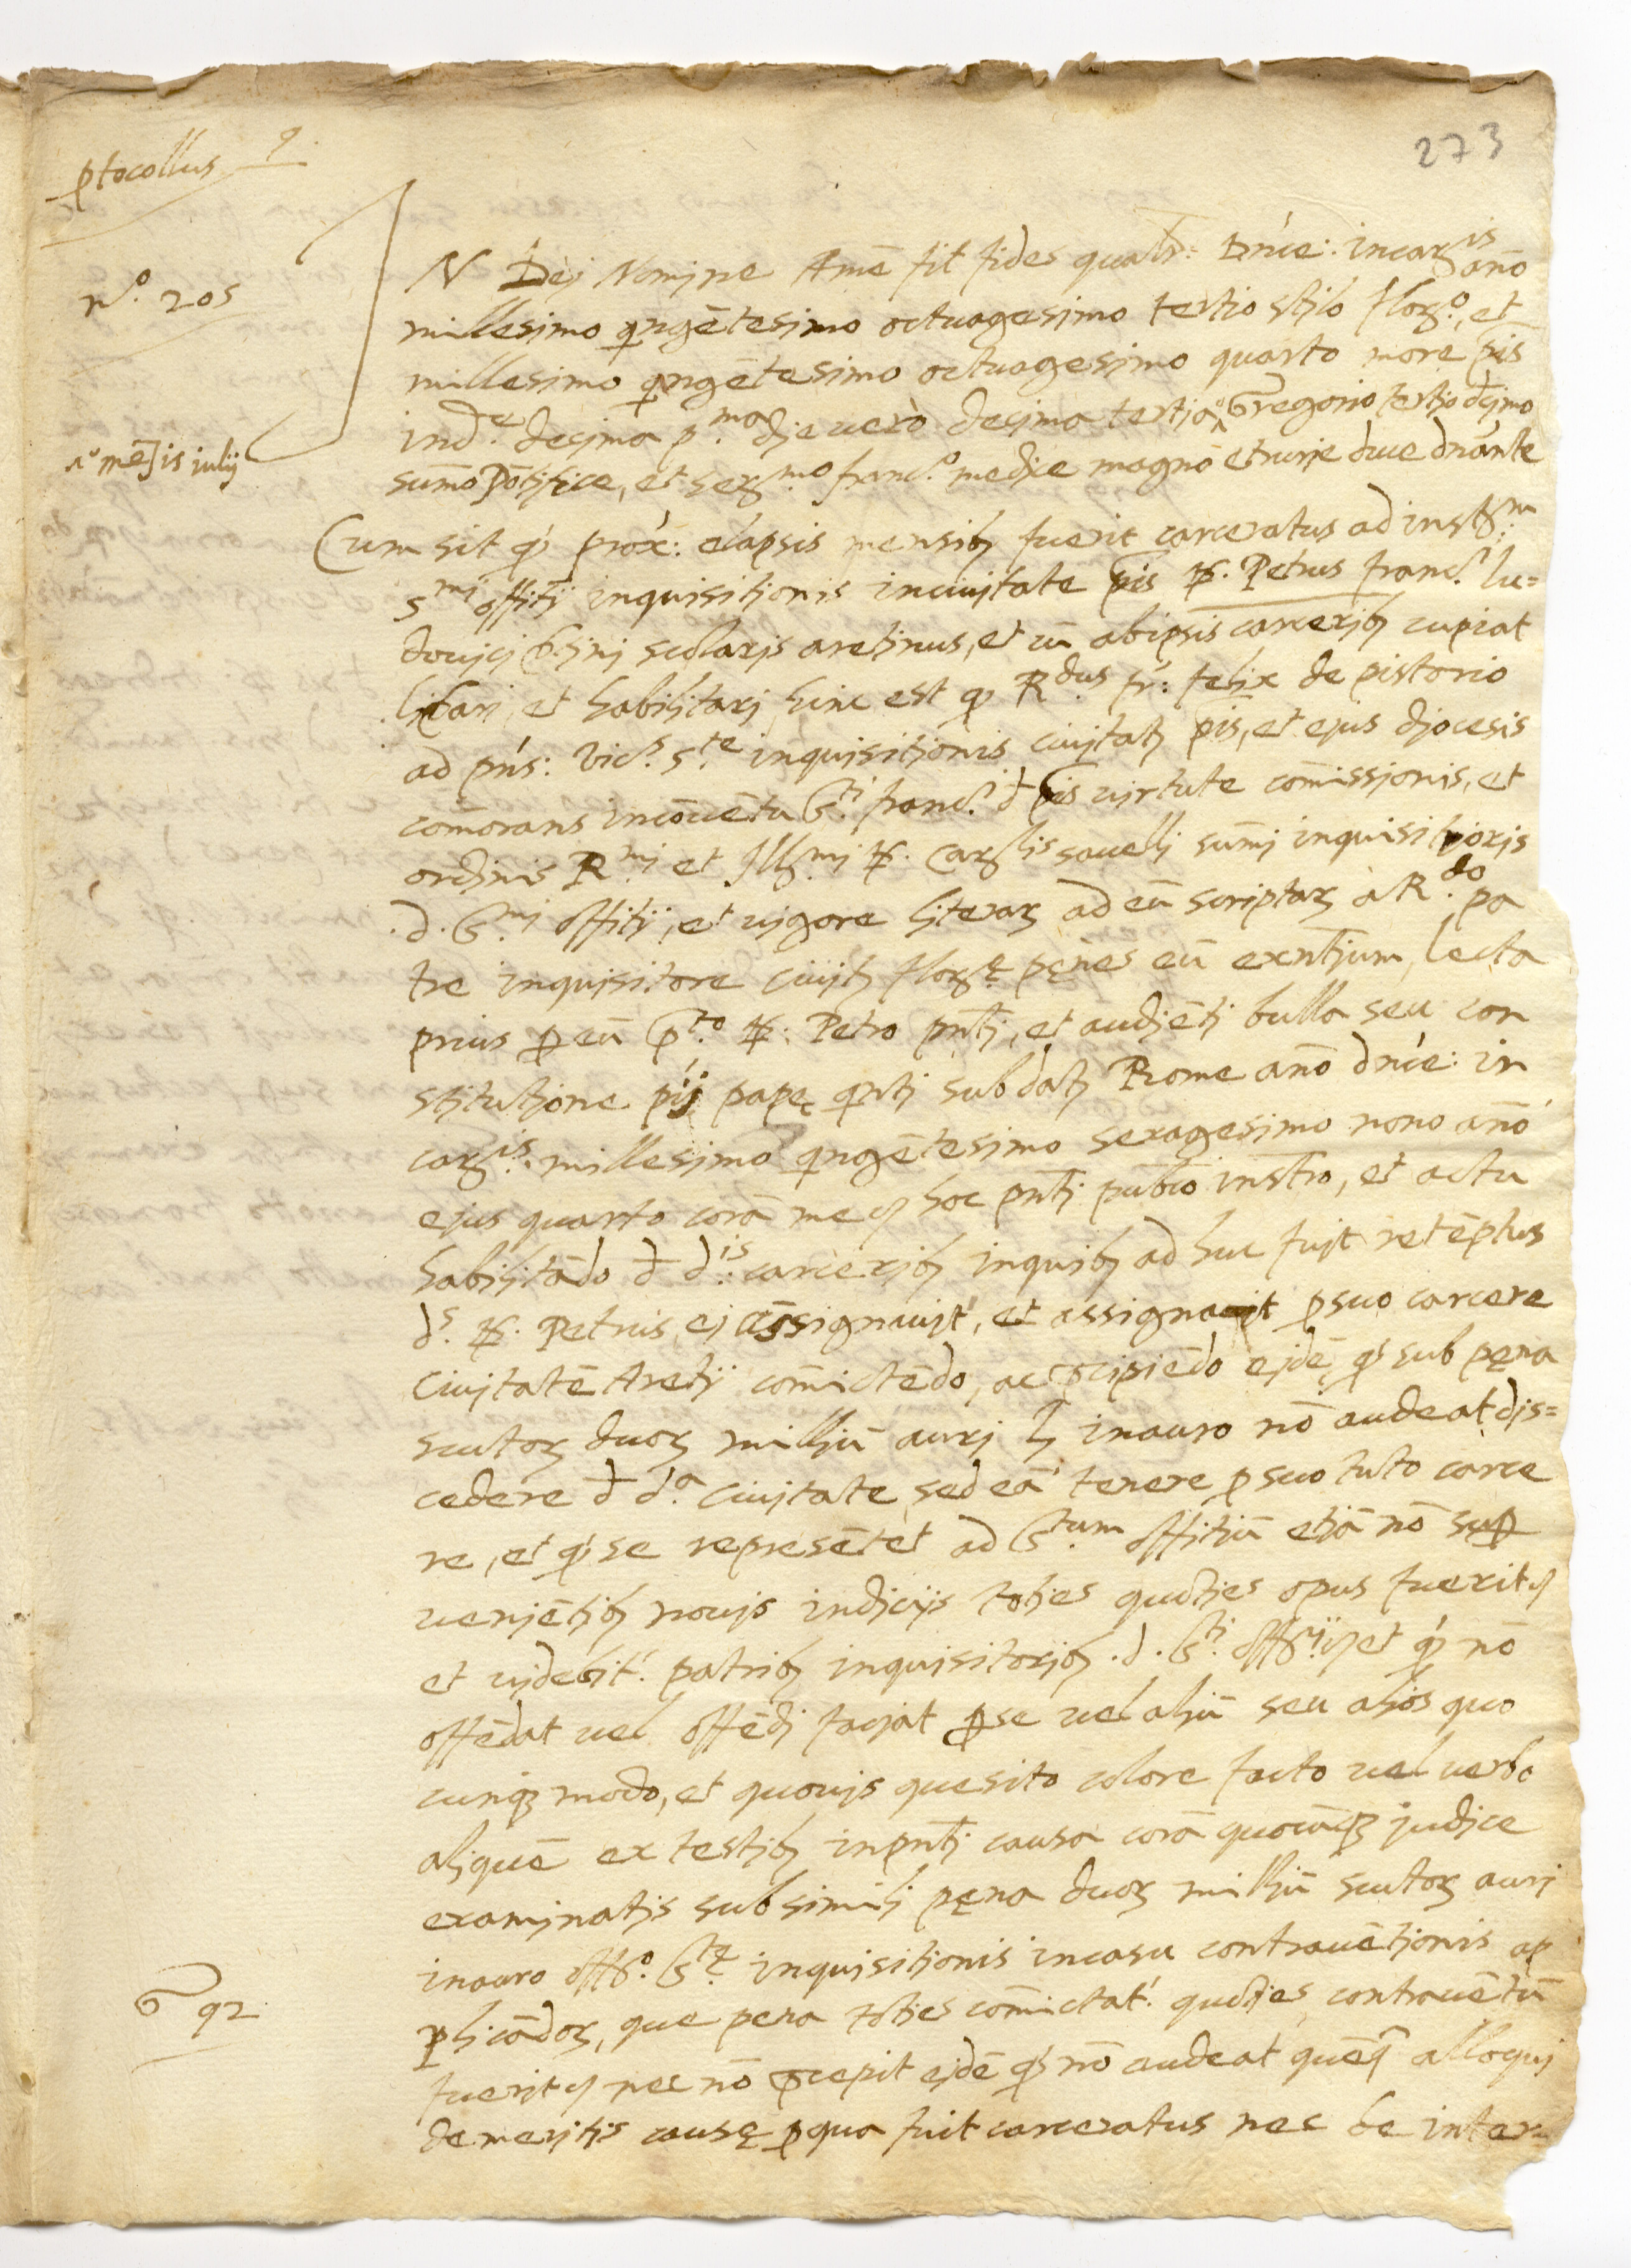 273
ptocollus 9.
N Dej Nomine Amē fit fides qualr: Dn̄ce: incar.is ano
n.o 205
millesimo qngētesimo octuagesimo tertio stilo flor.o, et
millesimo qngētesimo octuagesimo quarto more pis
ind.e decima p.ma die uerò decima tertia Gregorio tertio dcimo
mēsis iulij
sumō Pōtifice, et ser.mo franc.o medice magno etrurie duce dnānte
Cum sit q prox: elapsis mensib fuerit carceratus ad inst.m
s.mi offitij inquisitionis inciuitate pis D. Petrus franc.i lu=
douici scolaris aretinus, et cū abipsis carcerib cupiat
libari, et habilitari hinc est q R.dus fr: felix de pistorio
ad pn̄s: vic.s s.te inquisitionis ciuitat pis, et ejus diocesis
comorans incōuētu S.ti franc.i d pis uirtute comissionis, et
ordinis R.mi et Ill.mi D. Car.lis sauelli sumi inquisitoris
.d. S.mi offitij, et uigore literar ad eū scriptar à R.do pa
tre inquisitore ciuit flor.e penes eū exn̄tium, lecta
prius p eū p.to D. Petro pn̄ti, et audiēti bulla seu con
stitutione pij pape qnti sub dat Rome ano dn̄ce: in
car.is millesimo qngētesimo sexagesimo nono ano
ejus quarto corā me hoc pn̄ti publco instro, et actu
habilitādo d d.is carcerib inquib ad huc fuit retēptus
d.s D. Petrus, ei assignauit, et assignauit p suo carcere
ciuitatē Aretij comictēdo, ac pcipiēdo ejdē, q sub pena
scutor duor milliū auri inauro nō audeat dis=
cedere d d.a ciuitate, sed eā tenere p suo tuto carce
re, et q se represētet ad S.tum offitiū etiā nō sup
ueniētib nouis indicijs toties quoties opus fuerit
et uidebit. patrib inquisitorib .d. S.ti off.ij et q nō
offēdat uel offēdi faciat p se uel aliū seu alios quo
cunq modo, et quouis quesito colore facto uel uerbo
aliquē ex testib inpn̄ti causa corā quocūq judice
examinatis sub simili pena duor milliū scutor auri
inauro off.o S.te inquisitionis incasu contrauētionis ap
plicādor, que pena toties comictat. quoties contrauētū
92
fuerit nec nō pcepit ejdē q nō audeat quēq alloqui
de meritis cause p qua fuit carceratus nec de inter=